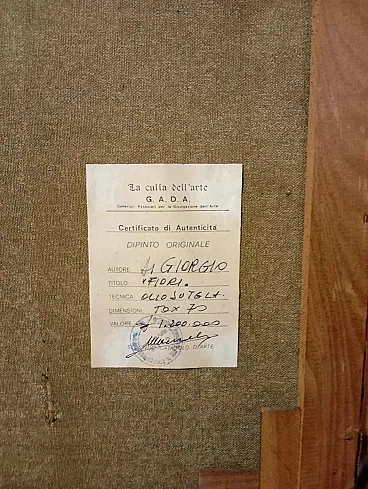 La culla dell'arte
G. A. D. A.
Gallerizi Associati per la Divulgazione dell'Arte
Certificato di Autenticità
DIPINTO ORIGINALE
AUTORE Di GIORGIO
TITOLO "FIORI"
TECNICA OLIO SU TELA
DIMENSIONI 70x70
VALORE £ 1.200.000
D'ARTE